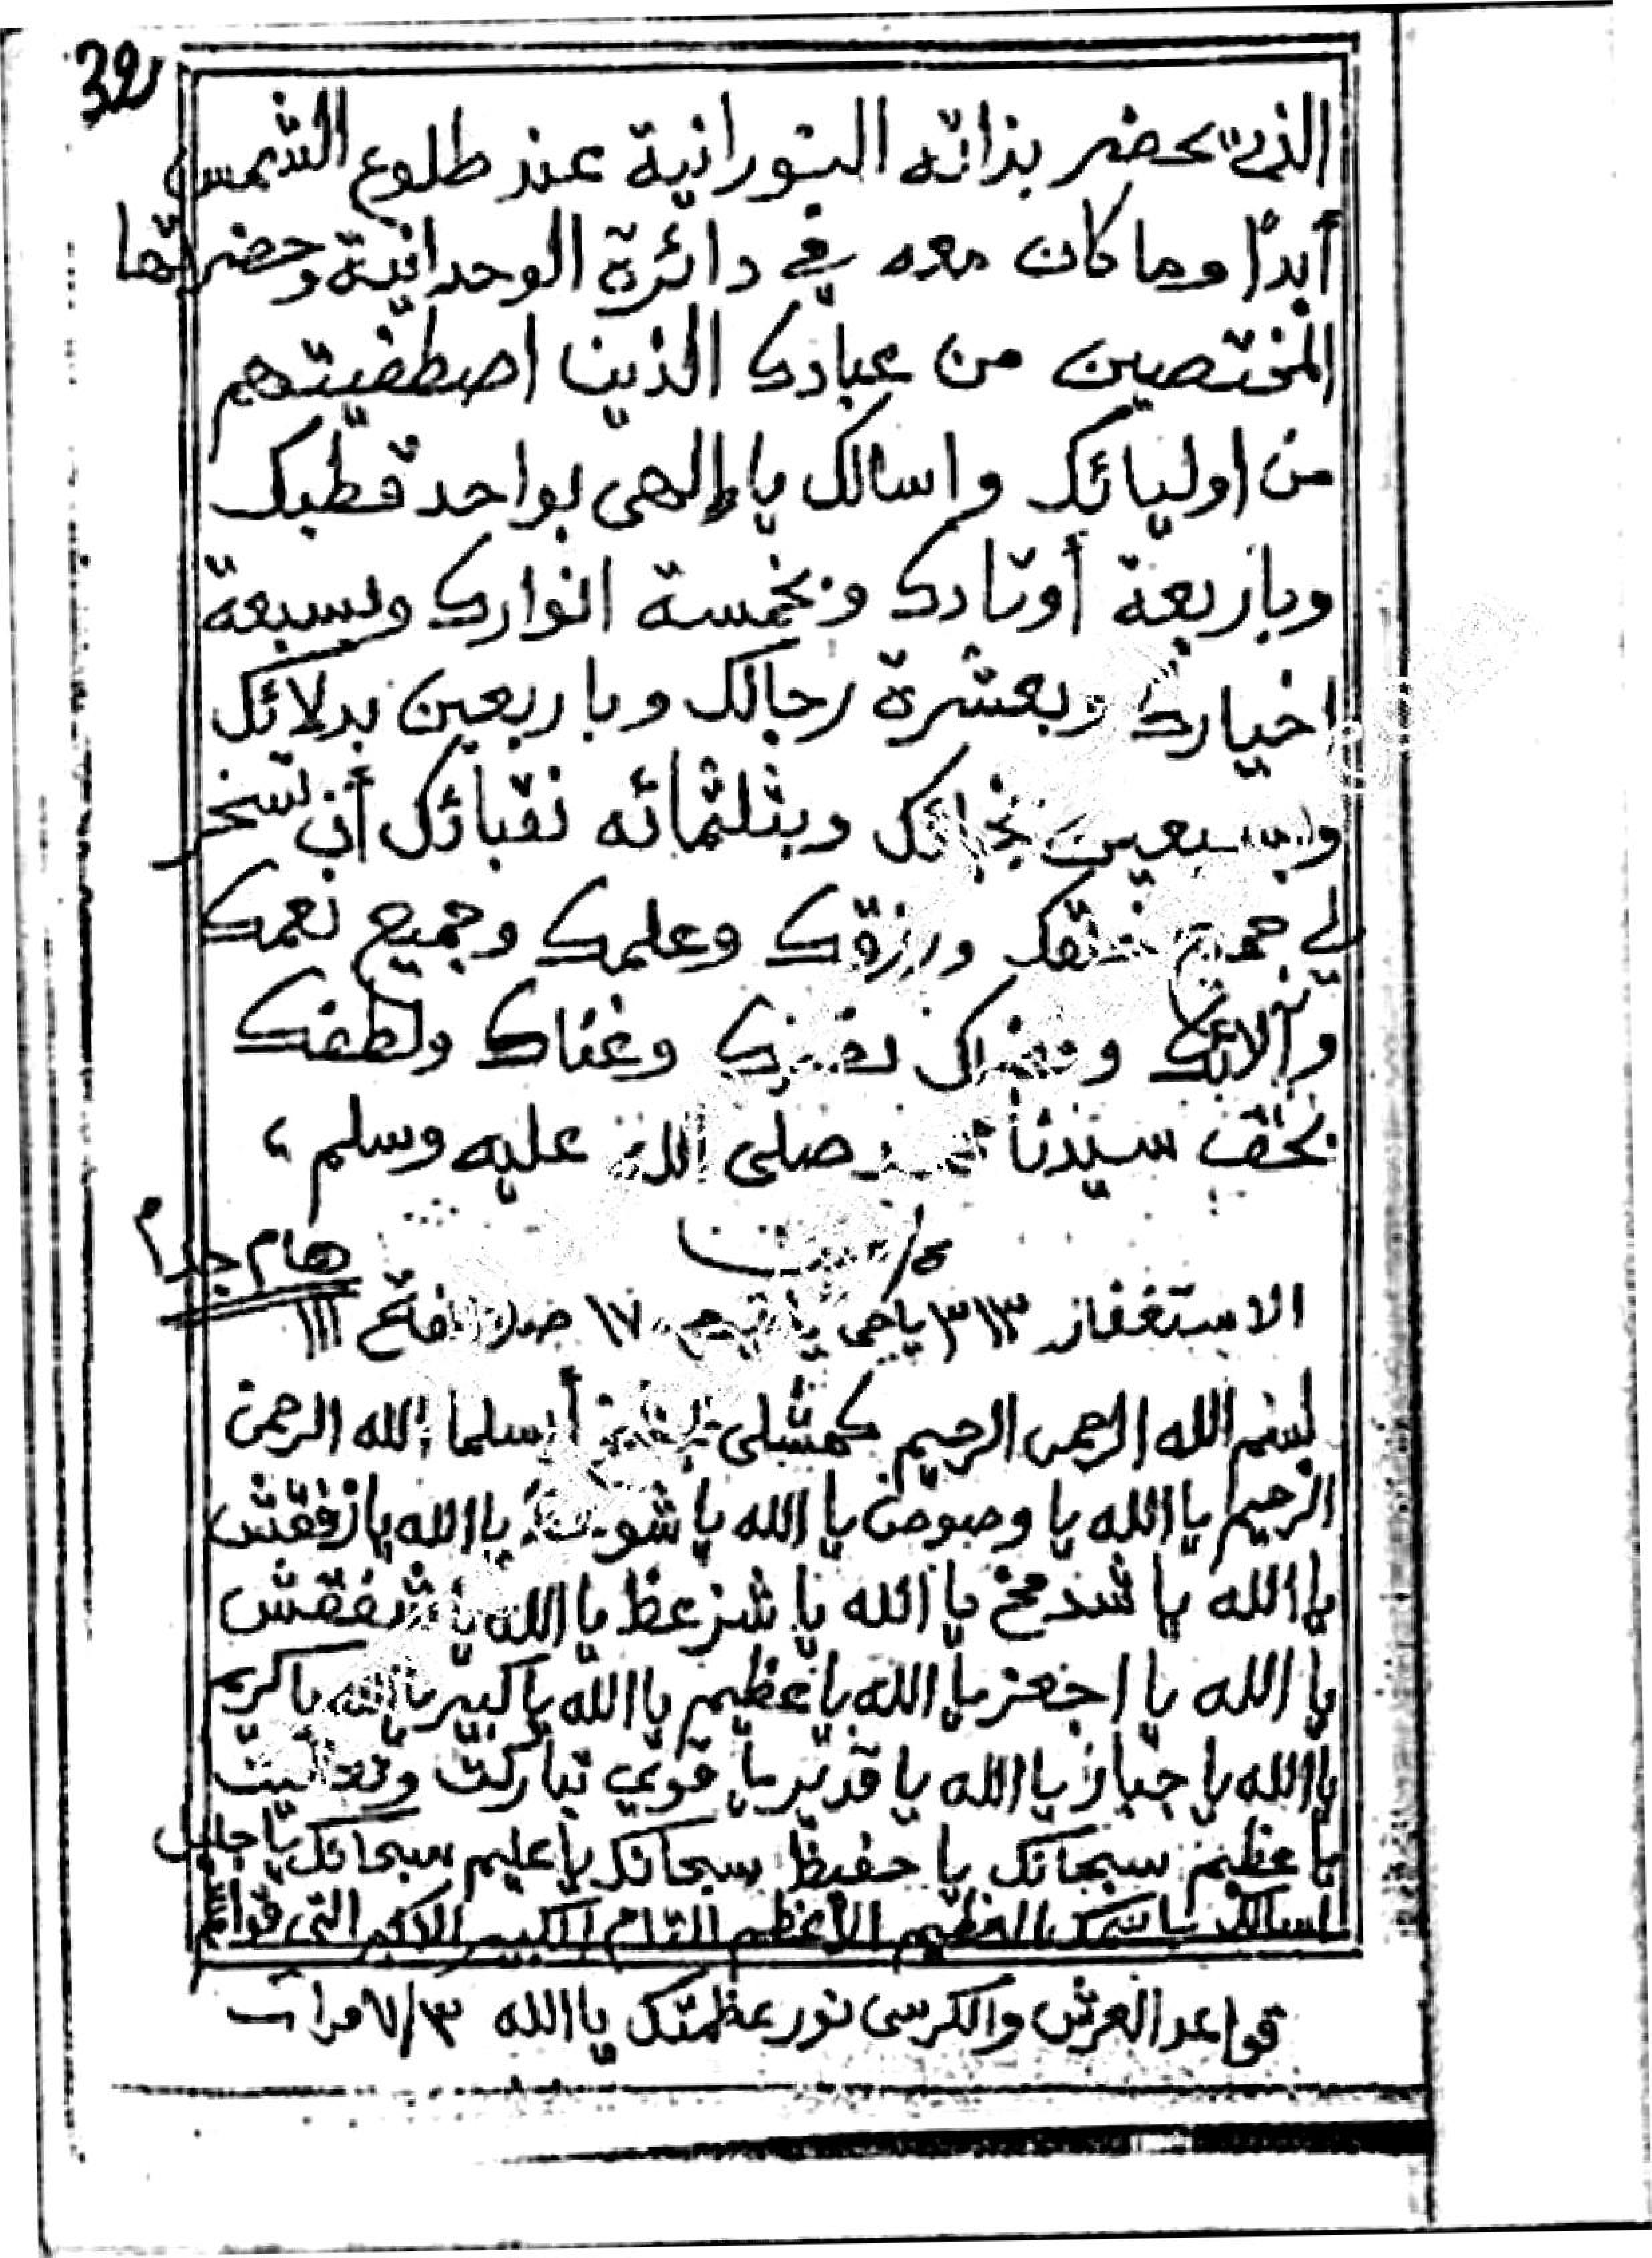 32
الذي يحضر بذاته النورانية عند طلوع الشمس
أبدًا وما كان معه في دائرة الوحدانية وحضراتها
المختصين من عبادك الذين اصطفيتهم
من اوليائك واسالك يا إلهى بواحد قطبك
وباربعة أوتادك وبخمسة انوارك وبسبعة
اخيارك وبعشرة رجالك وباربعين بدلائك
وبسبعين نجبائك وبثلثمائه نقبائك أن تسخر
لي جميع خلقك ورزقك وعلمك وجميع نعمك
وآلائك وغناك ولطفك
بحق سيدنا محمد صلى الله عليه وسلم
هام جدا
الاستغفار ٣١٣ ياحى يا قيوم ١٧ صلاة الفاتح ١١١
بسم الله الرحمن الرحيم أسلما الله الرحمن
الرحيم يا الله يا يا الله يا يا الله يا
يا الله يا شدمخ يا الله يا شزعظ يا الله يا شفقش
يا الله يا يا الله يا عظيم يا الله يا كبير يا الله يا كريم
يا الله يا جبار يا الله يا قدير يا قوي تباركت وتعاليت
يا عظيم سبحانك يا حفيظ سبحانك يا عليم سبحانك يا جليل
اسالك باسمك العظيم الأعظم التام الكبير الاكبر التى قوائم
قواعد العرش والكرسى نور عظمتك يا الله ٧/٣ مرات